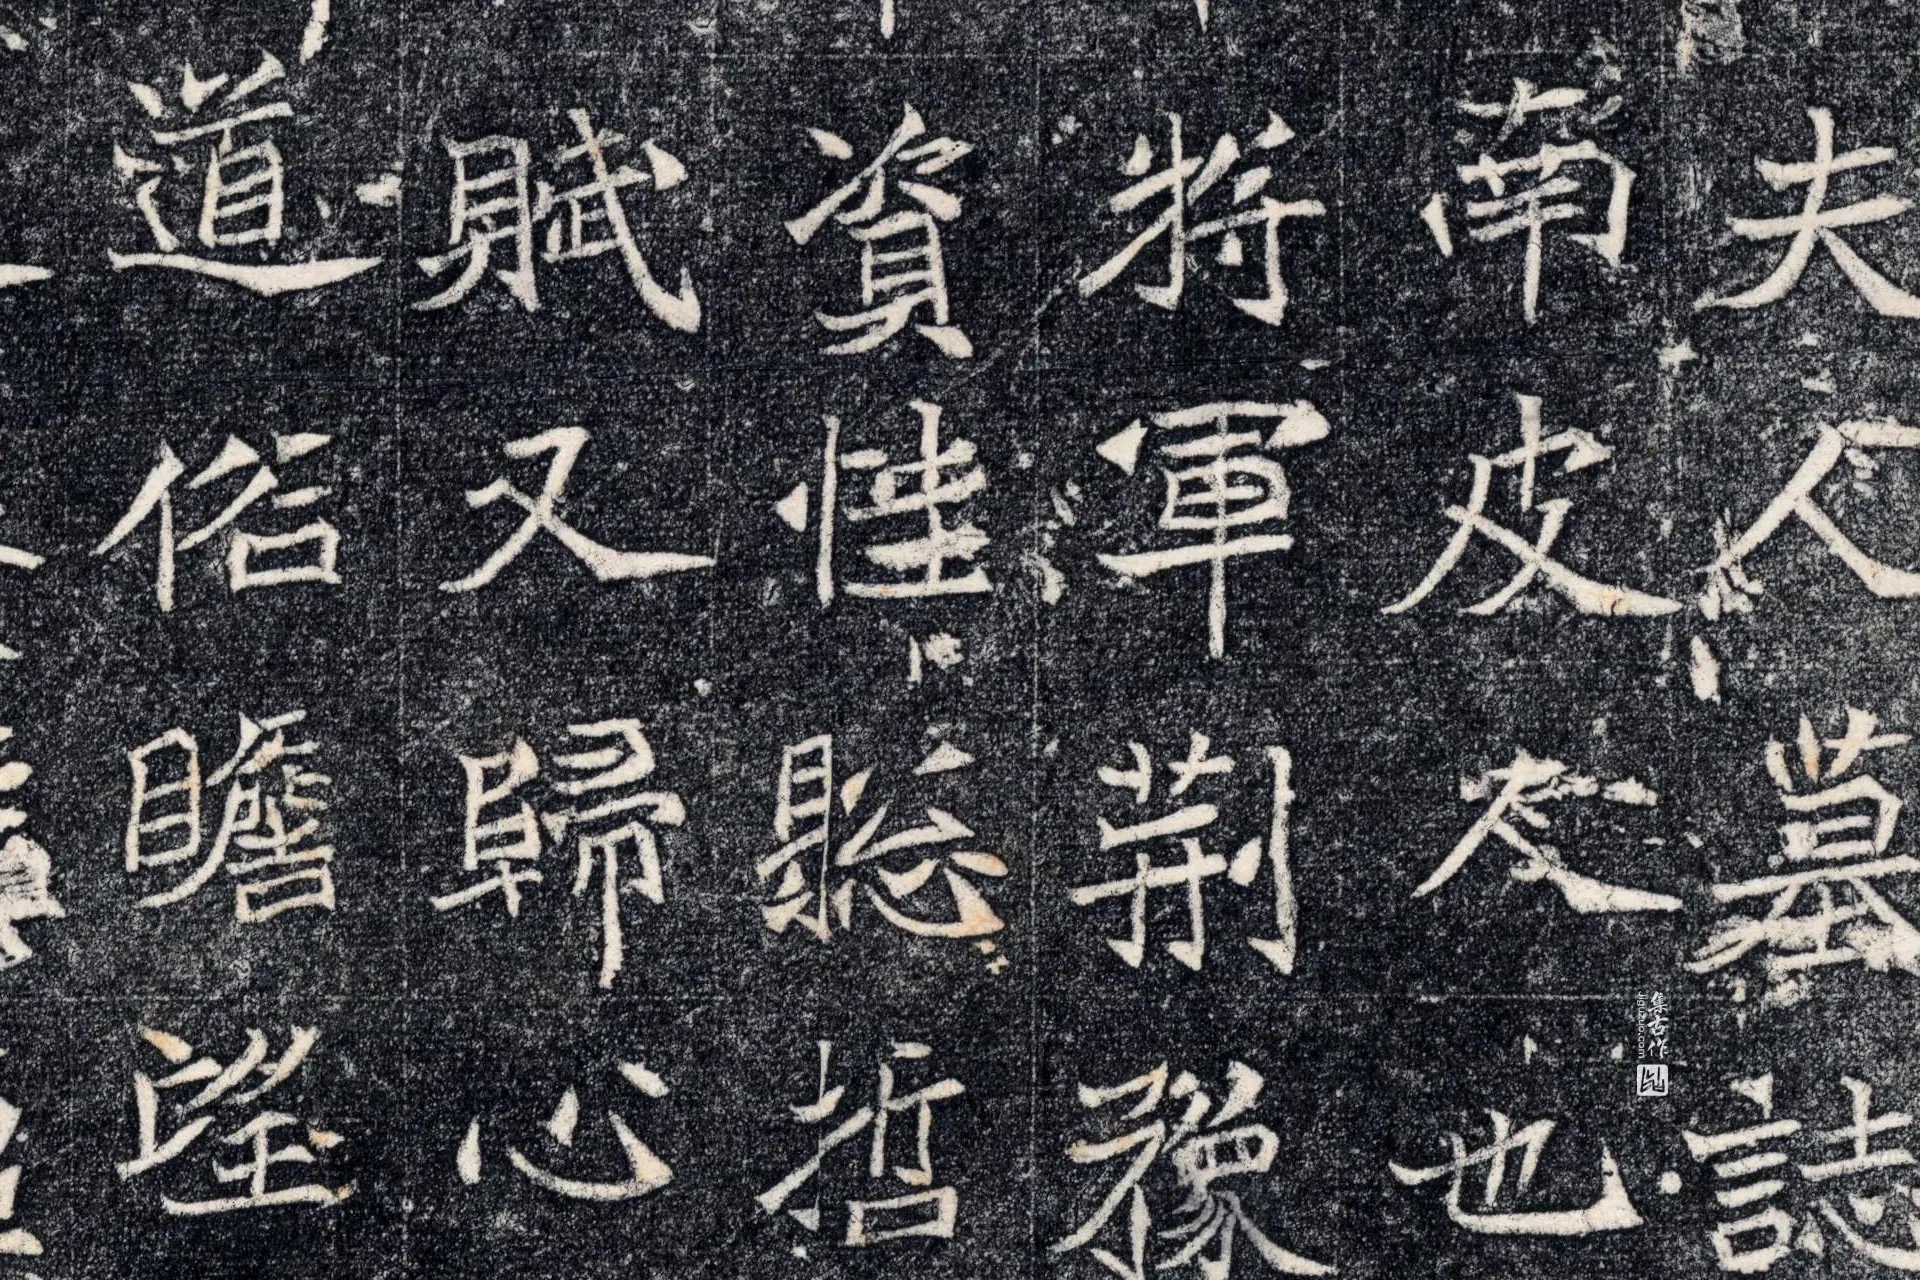 夫人墓誌
南皮人也
將軍荊豫
資性聡哲
賦又歸心
道俗瞻望
集古作
jiguzuo.com